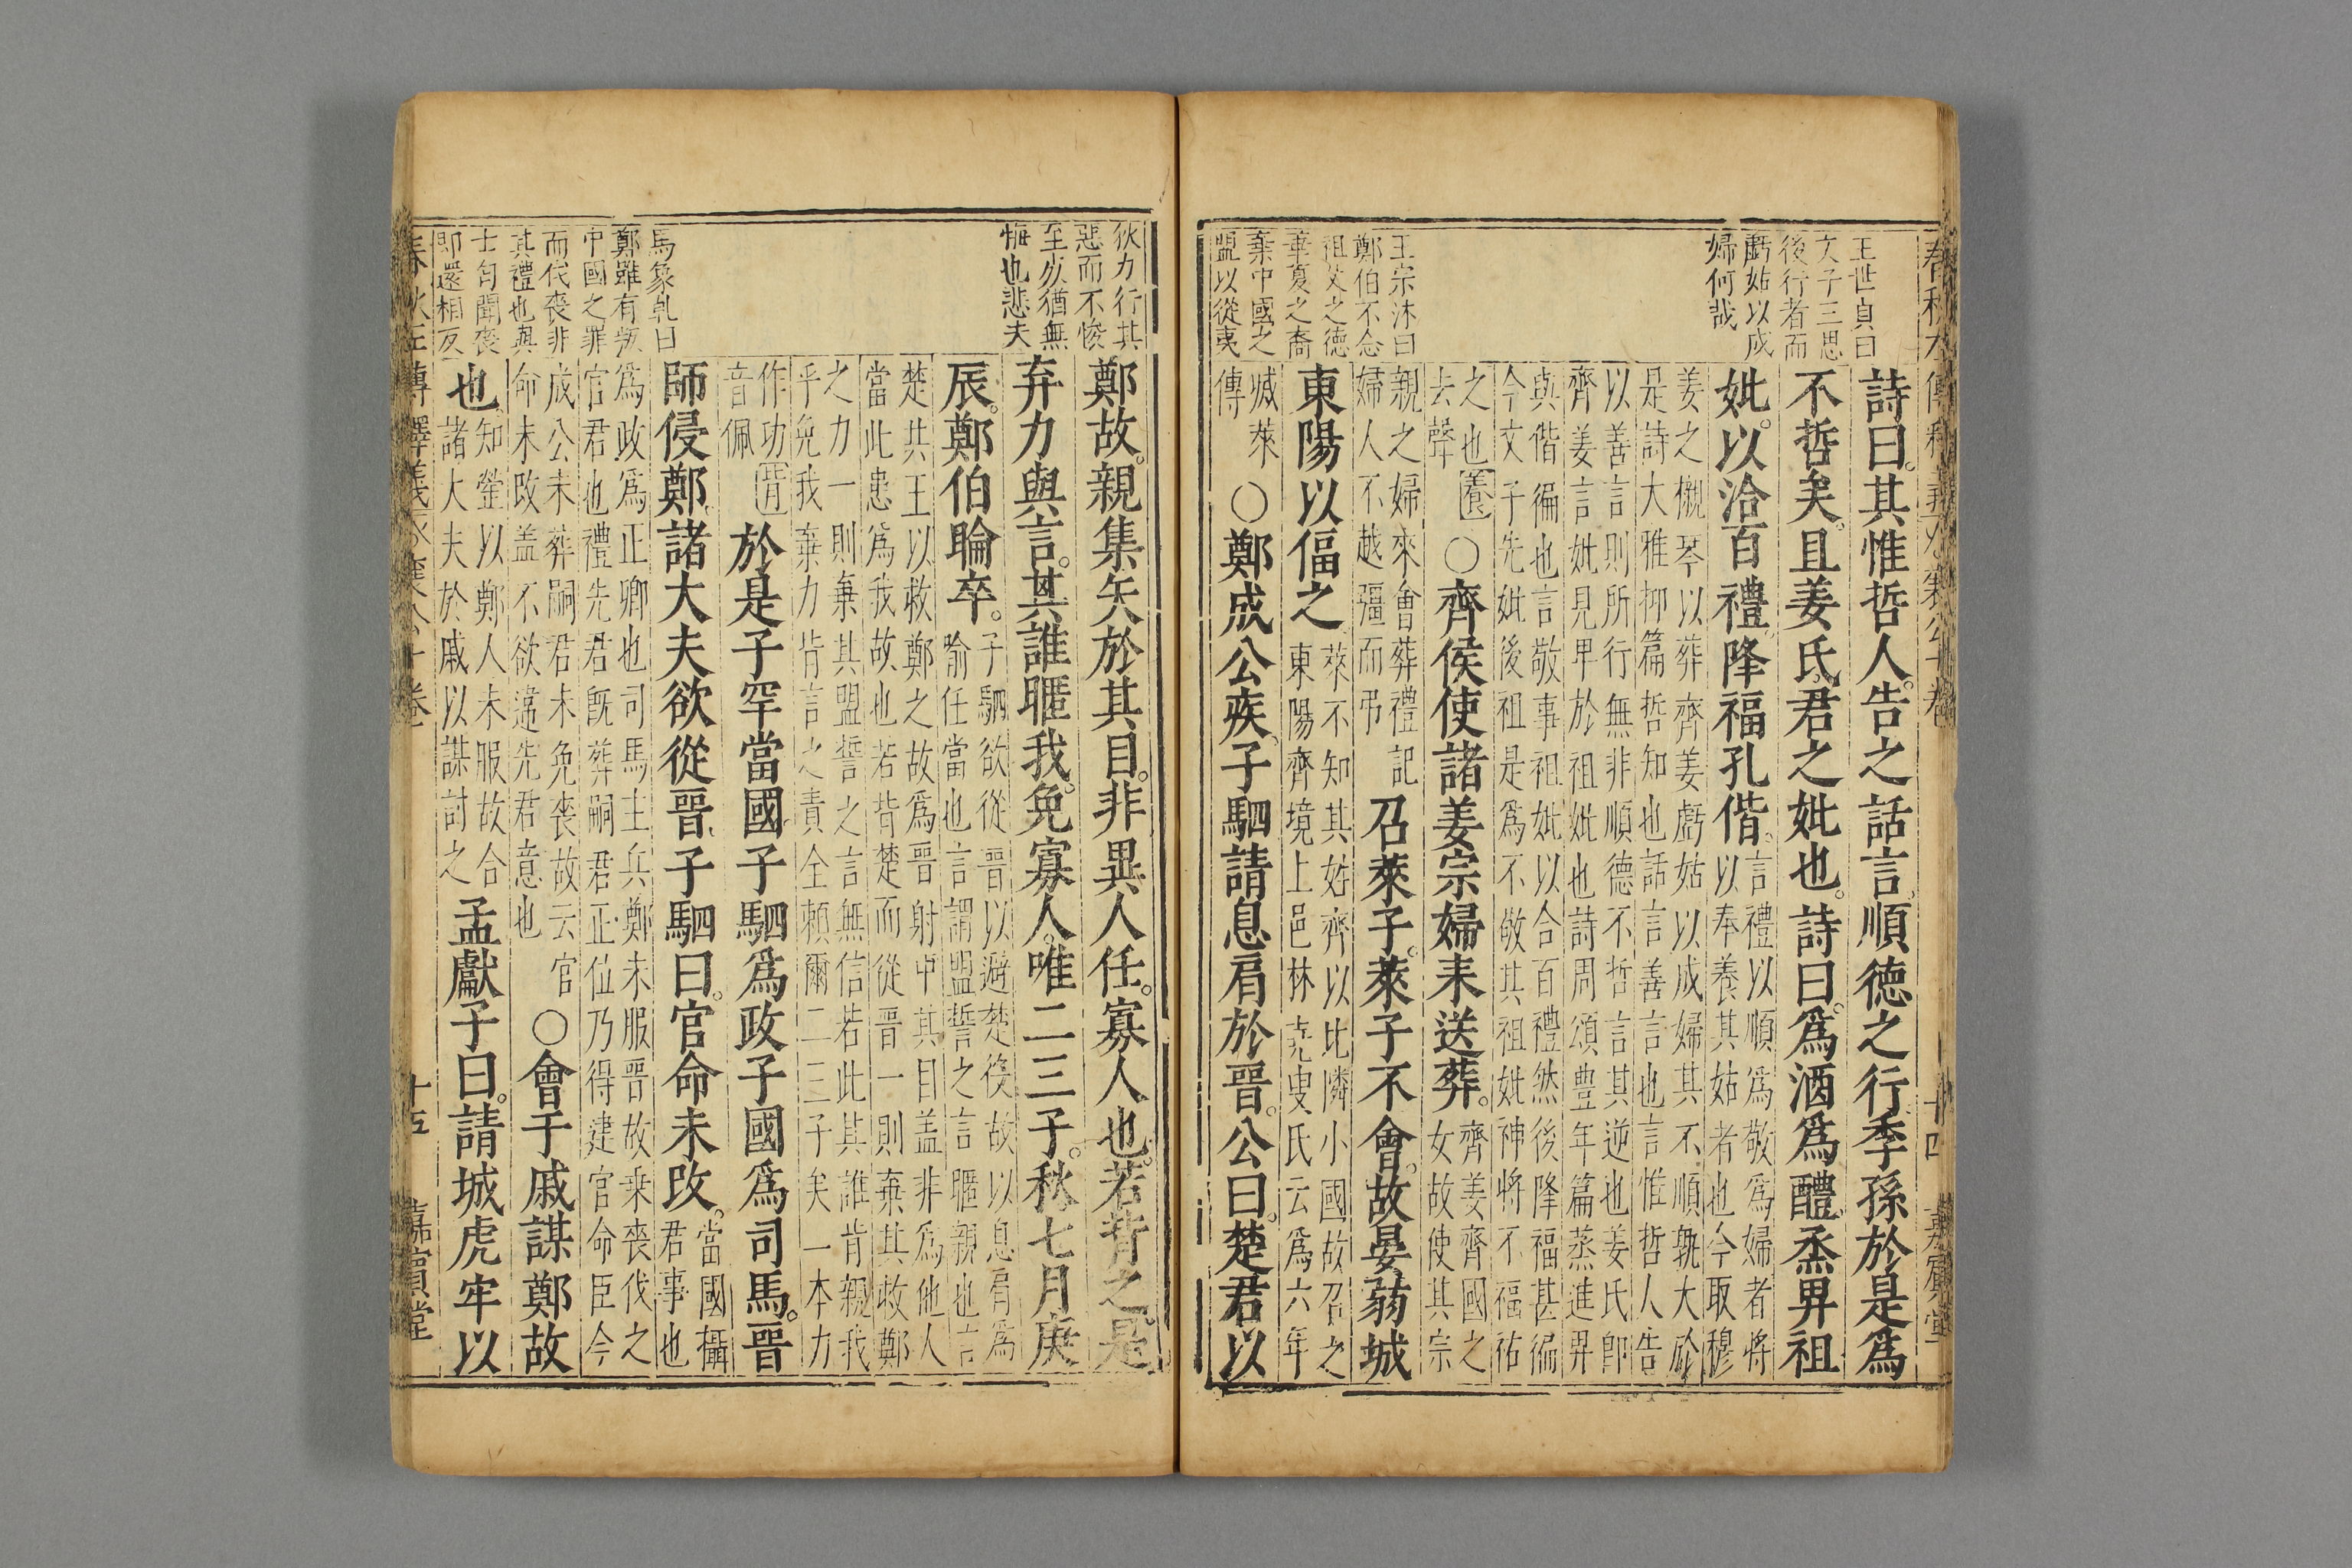 王世貞曰
文子三思
後行者而
虧姑以成
婦何哉
王宗沐曰
鄭伯不念
祖父之德
華夏之裔
棄中國之
盟以從夷
詩曰其惟哲人告之話言順德之行季孫於是爲
不哲矣且姜氏君之妣也詩曰爲酒爲醴烝畀祖
妣以洽百禮降福孔偕
言禮以順爲敬爲婦者將
以奉養其姑者也今取穆
姜之櫬琴以葬齊姜虧姑以成婦其不順孰大於
是詩大雅抑篇哲知也話言善言也言惟哲人告
以善言則所行無非順德不哲言其逆也姜氏卽
齊姜言妣見甲於祖妣也詩周頌豊年篇蒸進畀
與偕徧也言敬事祖妣以合百禮然後降福甚徧
今文子先妣後祖是爲不敬其祖妣神將不福祐
之也
去聲
養
○齊侯使諸姜宗婦来送葬
齊姜齊國之
女故使其宗
親之婦來會葬禮記
婦人不越疆而弔
召萊子萊子不會故晏弱城
東陽以偪之
萊不知其姓齊以比隣小國故召之
東陽齊境上邑林堯叟氏云爲六年
滅萊
傳
○鄭成公疾子駟請息肩於晉公曰楚君以
春秋左傳釋義
襄公
卷
十四
嘉賓堂
狄力行其
惡而不悛
至死猶無
悔也悲夫
馬象乾曰
鄭雖有叛
中國之罪
而伐喪非
其禮也與
士匄聞喪
即還相反
鄭故親集矢於其目非異人任寡人也若背之是
弃力與言其誰暱我免寡人唯二三子秋七月庚
辰鄭伯睔卒
子駟欲從晉以避楚役故以息肩爲
喻任當也言謂盟誓之言暱親也言
楚共王以救鄭之故爲晉射中其目盖非爲他人
當此患爲我故也若背楚而從晉一則棄其救鄭
之力一則棄其盟誓之言無信若此其誰肯親我
乎免我棄力背言之責全賴爾二三子矣一本力
作功
音佩
背
於是子罕當國子駟爲政子國爲司馬晉
師侵鄭諸大夫欲從晉子駟曰官命未改
當國攝
君事也
爲政爲正卿也司馬主兵鄭未服晉故乗喪伐之
官君也禮先君旣葬嗣君正位乃得建官命臣今
成公未葬嗣君未免喪故云官
命未改盖不欲違先君意也
○會于戚謀鄭故
也
知罃以鄭人未服故合
諸大夫於戚以謀討之
孟獻子曰請城虎牢以
春秋左傳釋義
襄公
卷
十五
嘉賓堂